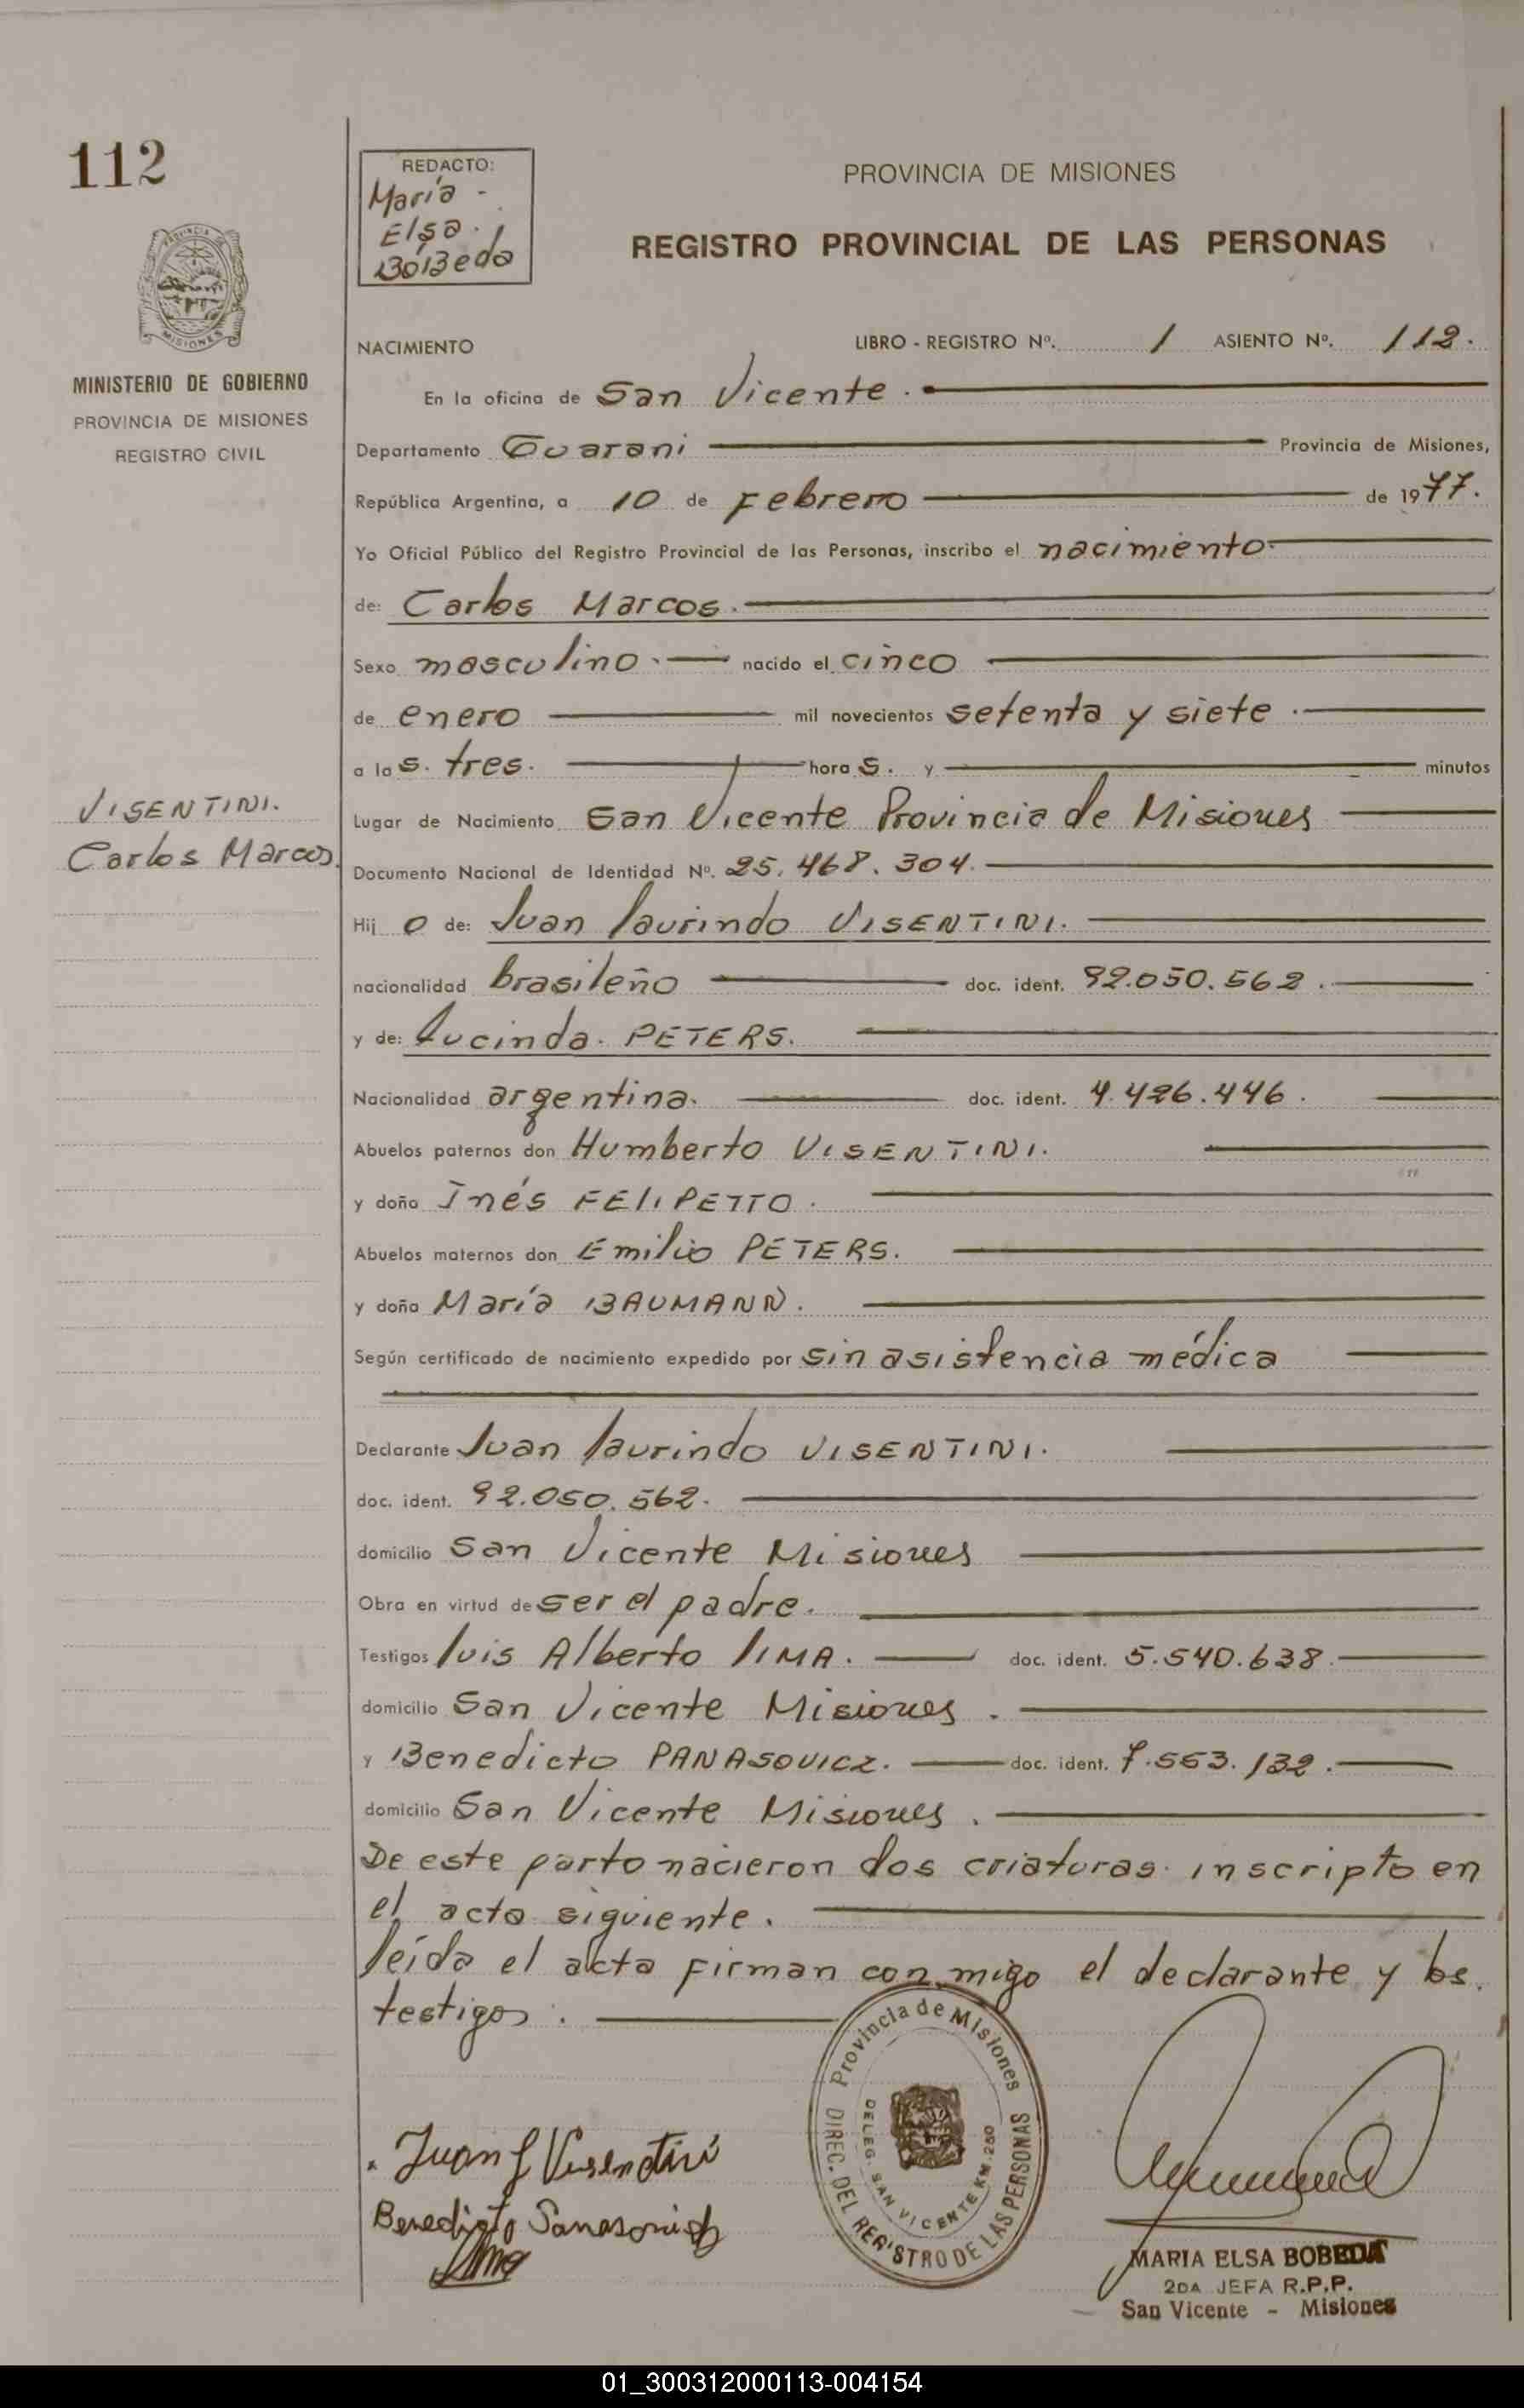 112
REDACTO:
María -
Elsa.
Bóbeda
PROVINCIA DE MISIONES
REGISTRO PROVINCIAL DE LAS PERSONAS
PROVINCIA DE
MISIONES
MINISTERIO DE GOBIERNO
PROVINCIA DE MISIONES
REGISTRO CIVIL
NACIMIENTO LIBRO - REGISTRO Nº. 1 ASIENTO Nº. 112.
En la oficina de San Vicente.
Departamento Guarani Provincia de Misiones,
República Argentina, a 10 de Febrero de 1977.
Yo Oficial Público del Registro Provincial de las Personas, inscribo el nacimiento
de: Carlos Marcos.
Sexo masculino. nacido el cinco
de enero mil novecientos setenta y siete.
a las. tres. horas. y minutos
Lugar de Nacimiento San Vicente Provincia de Misiones
VISENTINI.
Carlos Marcos.
Documento Nacional de Identidad Nº. 25.468.304.
Hijo de: Juan Laurindo VISENTINI.
nacionalidad brasileño doc. ident. 92.050.562.
y de: Lucinda. PETERS.
Nacionalidad argentina. doc. ident. 4.426.446.
Abuelos paternos don Humberto VISENTINI.
y doña Inés FELIPETTO.
Abuelos maternos don Emilio PETERS.
y doña María BAUMANN.
Según certificado de nacimiento expedido por sin asistencia médica
Declarante Juan Laurindo VISENTINI.
doc. ident. 92.050.562.
domicilio San Vicente Misiones
Obra en virtud de ser el padre.
Testigos Luis Alberto LIMA. doc. ident. 5.540.638.
domicilio San Vicente Misiones.
y Benedicto PANASOVICZ. doc. ident. 7.553.132.
domicilio San Vicente Misiones.
De este parto nacieron dos criaturas. inscripto en
el acta siguiente.
leída el acta firman conmigo el declarante y los.
testigos.
Provincia de Misiones
DIREC. DEL REGISTRO DE LAS PERSONAS
DELEG. SAN VICENTE KM.250
Juan L Visentini
Benedicto
Lima
MARIA ELSA BOBEDA
2DA JEFA R.P.P.
San Vicente - Misiones
01_300312000113-004154